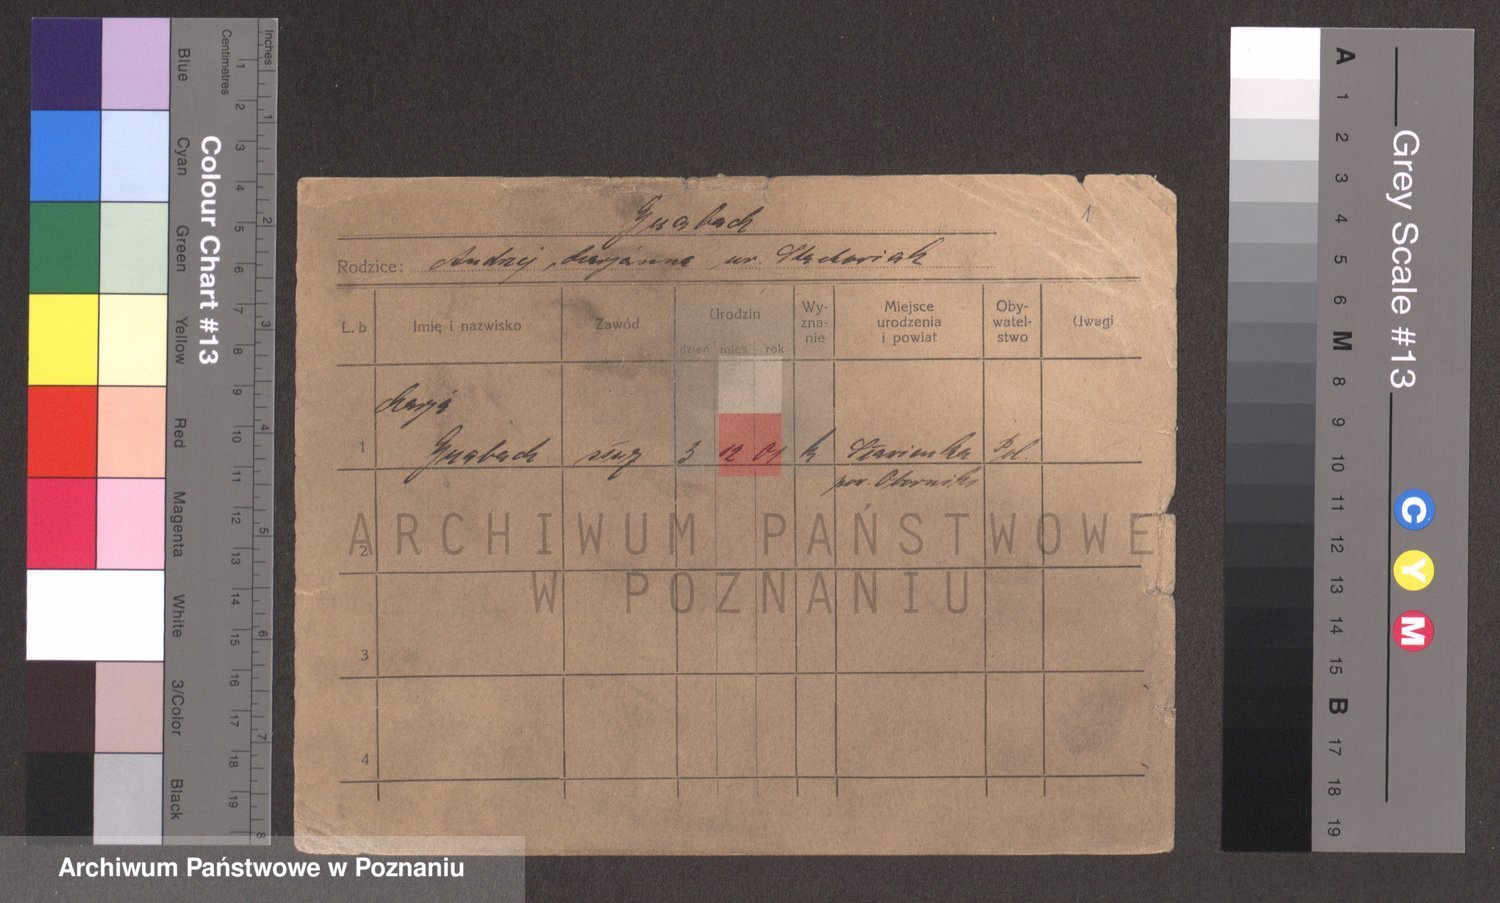 Inches
Centimetres
Colour Chart #13
Blue
Cyan
Green
Yellow
Red
Magenta
White
3/Color
Black
1 2 3 4 5 6 7 8 9 10 11 12 13 14 15 16 17 18 19
1 2 3 4 5 6 7 8
1
Rodzice: Andrzej, Marjanna ur. Stachowiak
L. b Imię i nazwisko Zawód Urodzin Wy-zna-nie Miejsce urodzenia i powiat Oby-watel-stwo Uwagi
dzień mies. rok
Marja
1 służ 3 12 01 k Pol
pow. Oborniki
2
3
4
ARCHIWUM PAŃSTWOWE
W POZNANIU
Archiwum Państwowe w Poznaniu
Grey Scale #13
A 1 2 3 4 5 6 M 8 9 10 11 12 13 14 15 B 17 18 19
C Y M